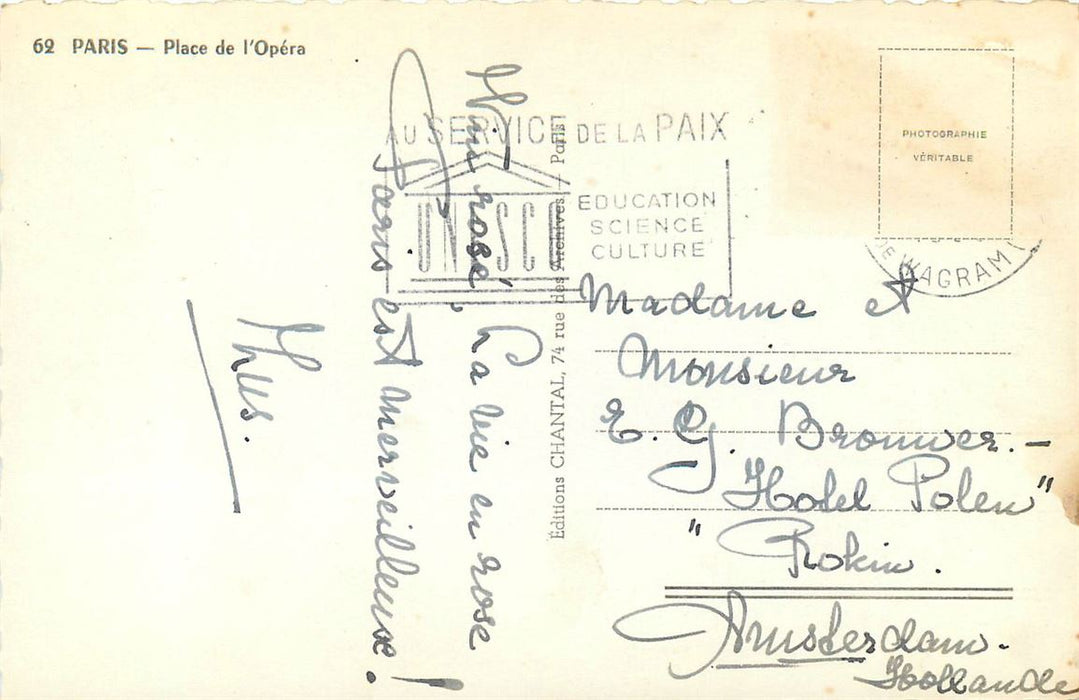 62 PARIS — Place de l'Opéra
AU SERVICE DE LA PAIX
UNESCO
EDUCATION
SCIENCE
CULTURE
PHOTOGRAPHIE
VÉRITABLE
WAGRAM
Éditions CHANTAL, 74 rue des Archives — Paris
rosé, La vie en rose
Paris est merveilleuse!
Madame et
Monsieur
E. G. Brouwer.—
"Hotel Polen"
Rokin.
Amsterdam.
Hollande